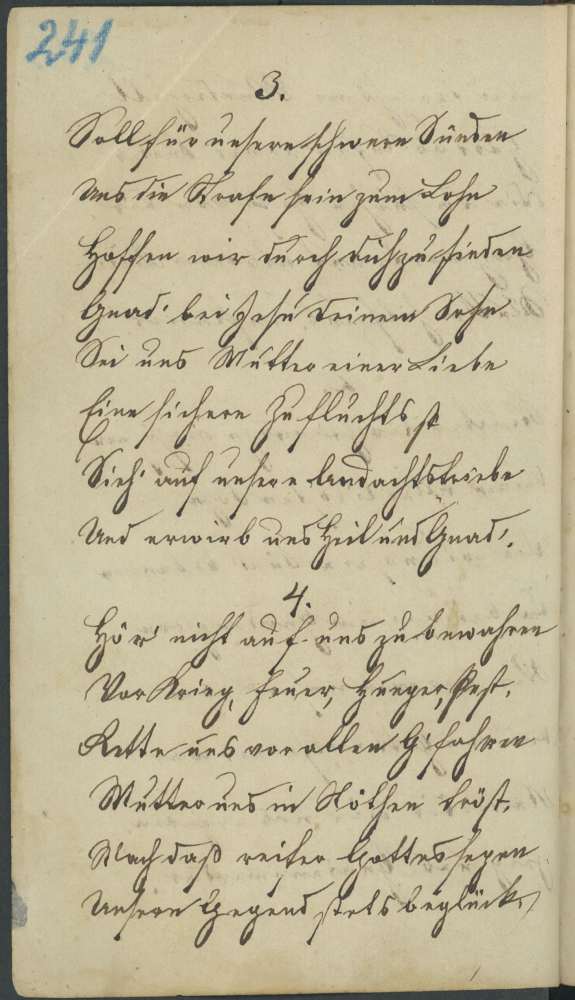 241
3.
Soll für unsere schwere Sünden
Uns die Strafe sein zum Lohn
Hoffen wir durch dich zu finden
Gnad' bei Jesu deinem Sohn
Sei uns Mutter einer Liebe
Eine sichere Zufluchts st
Sieh' auf unsere Andachtstriebe
Und erwirb uns Heil und Gnad'.
4.
Hör' nicht auf uns zu bewahren
Vor Krieg, Feuer, Hunger, Pest,
Rette uns vor allen G'fahren
Mutter uns in Nöthen tröst,
Mach daß reicher Gottes segen
Unsere Gegend stets beglückt,